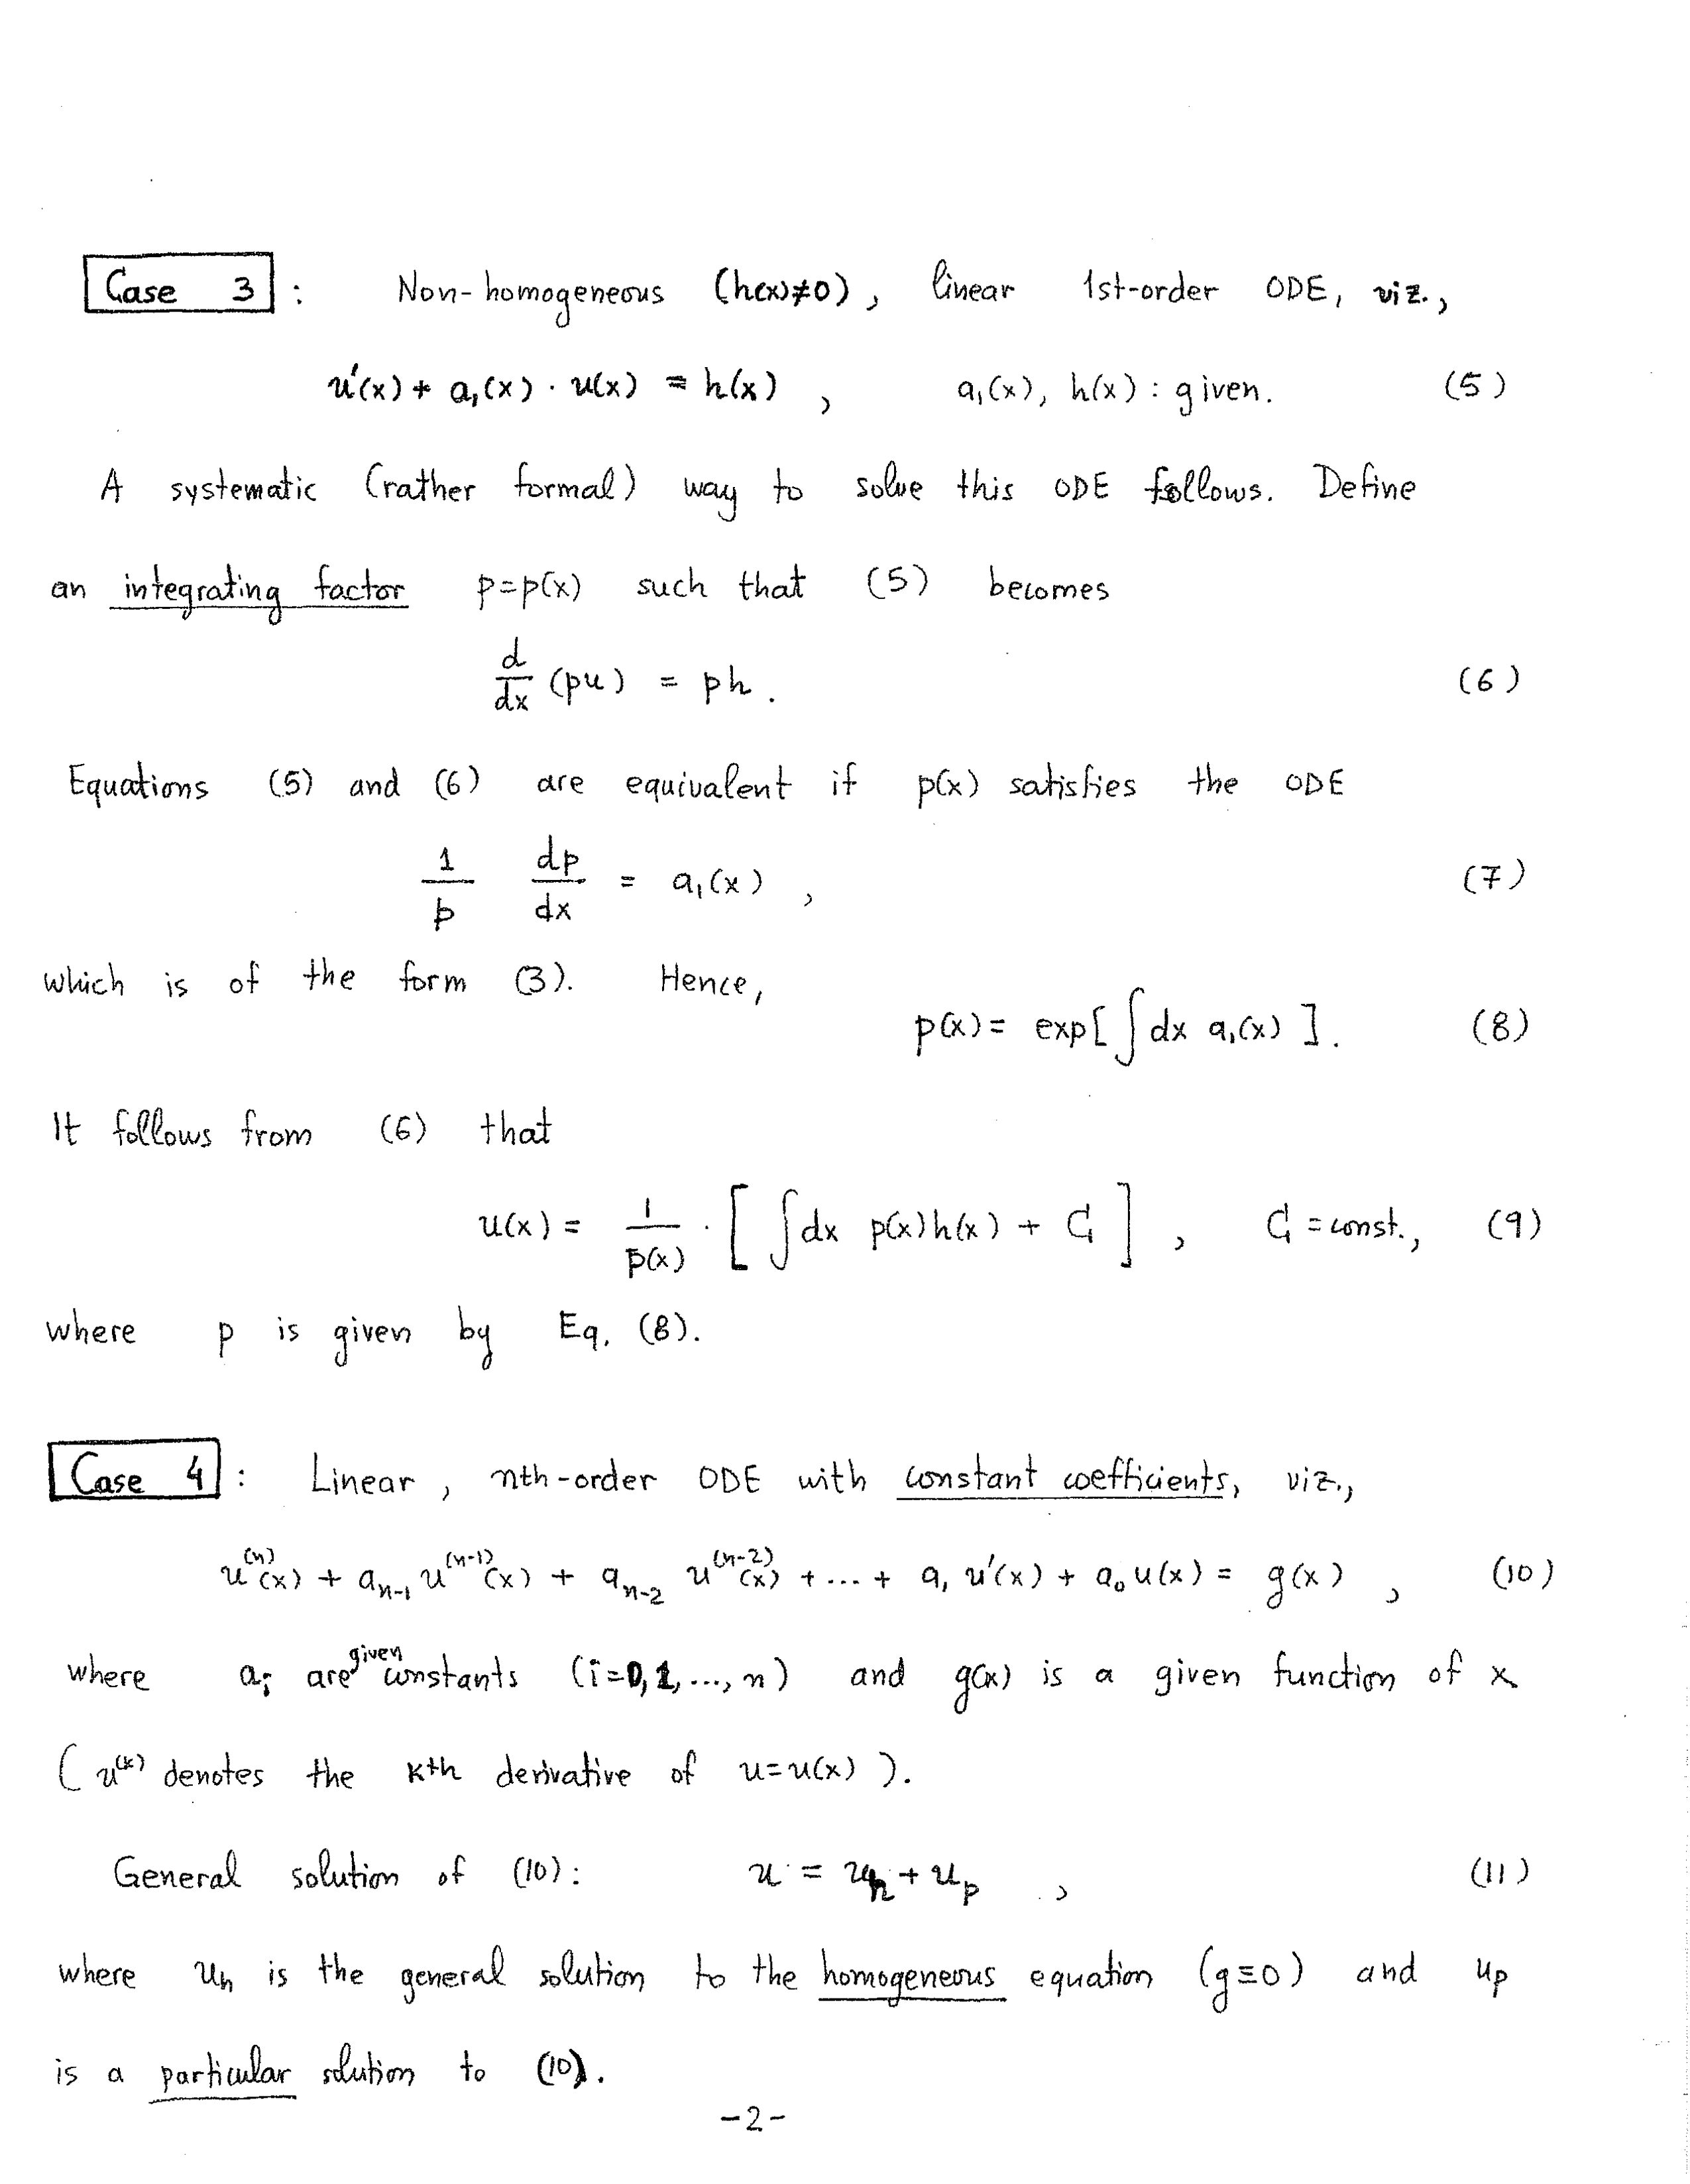 Case 3 : Non-homogeneous (h(x)≠0), linear 1st-order ODE, viz.,
u'(x) + a₁(x) · u(x) = h(x) , a₁(x), h(x) : given. (5)
A systematic (rather formal) way to solve this ODE follows. Define
an integrating factor p=p(x) such that (5) becomes
d/dx (pu) = ph . (6)
Equations (5) and (6) are equivalent if p(x) satisfies the ODE
1/p dp/dx = a₁(x) , (7)
which is of the form (3). Hence,
p(x) = exp[ ∫dx a₁(x) ] . (8)
It follows from (6) that
u(x) = 1/p(x) · [ ∫dx p(x)h(x) + C₁ ] , C₁ = const., (9)
where p is given by Eq. (8).
Case 4 : Linear, nth-order ODE with constant coefficients, viz.,
u⁽ⁿ⁾(x) + aₙ₋₁ u⁽ⁿ⁻¹⁾(x) + aₙ₋₂ u⁽ⁿ⁻²⁾(x) + ... + a₁ u'(x) + a₀ u(x) = g(x) , (10)
where aᵢ are given constants (i=0,1,...,n) and g(x) is a given function of x
( u⁽ᵏ⁾ denotes the kth derivative of u=u(x) ).
General solution of (10): u = uₕ + uₚ , (11)
where uₕ is the general solution to the homogeneous equation (g≡0) and uₚ
is a particular solution to (10).
-2-